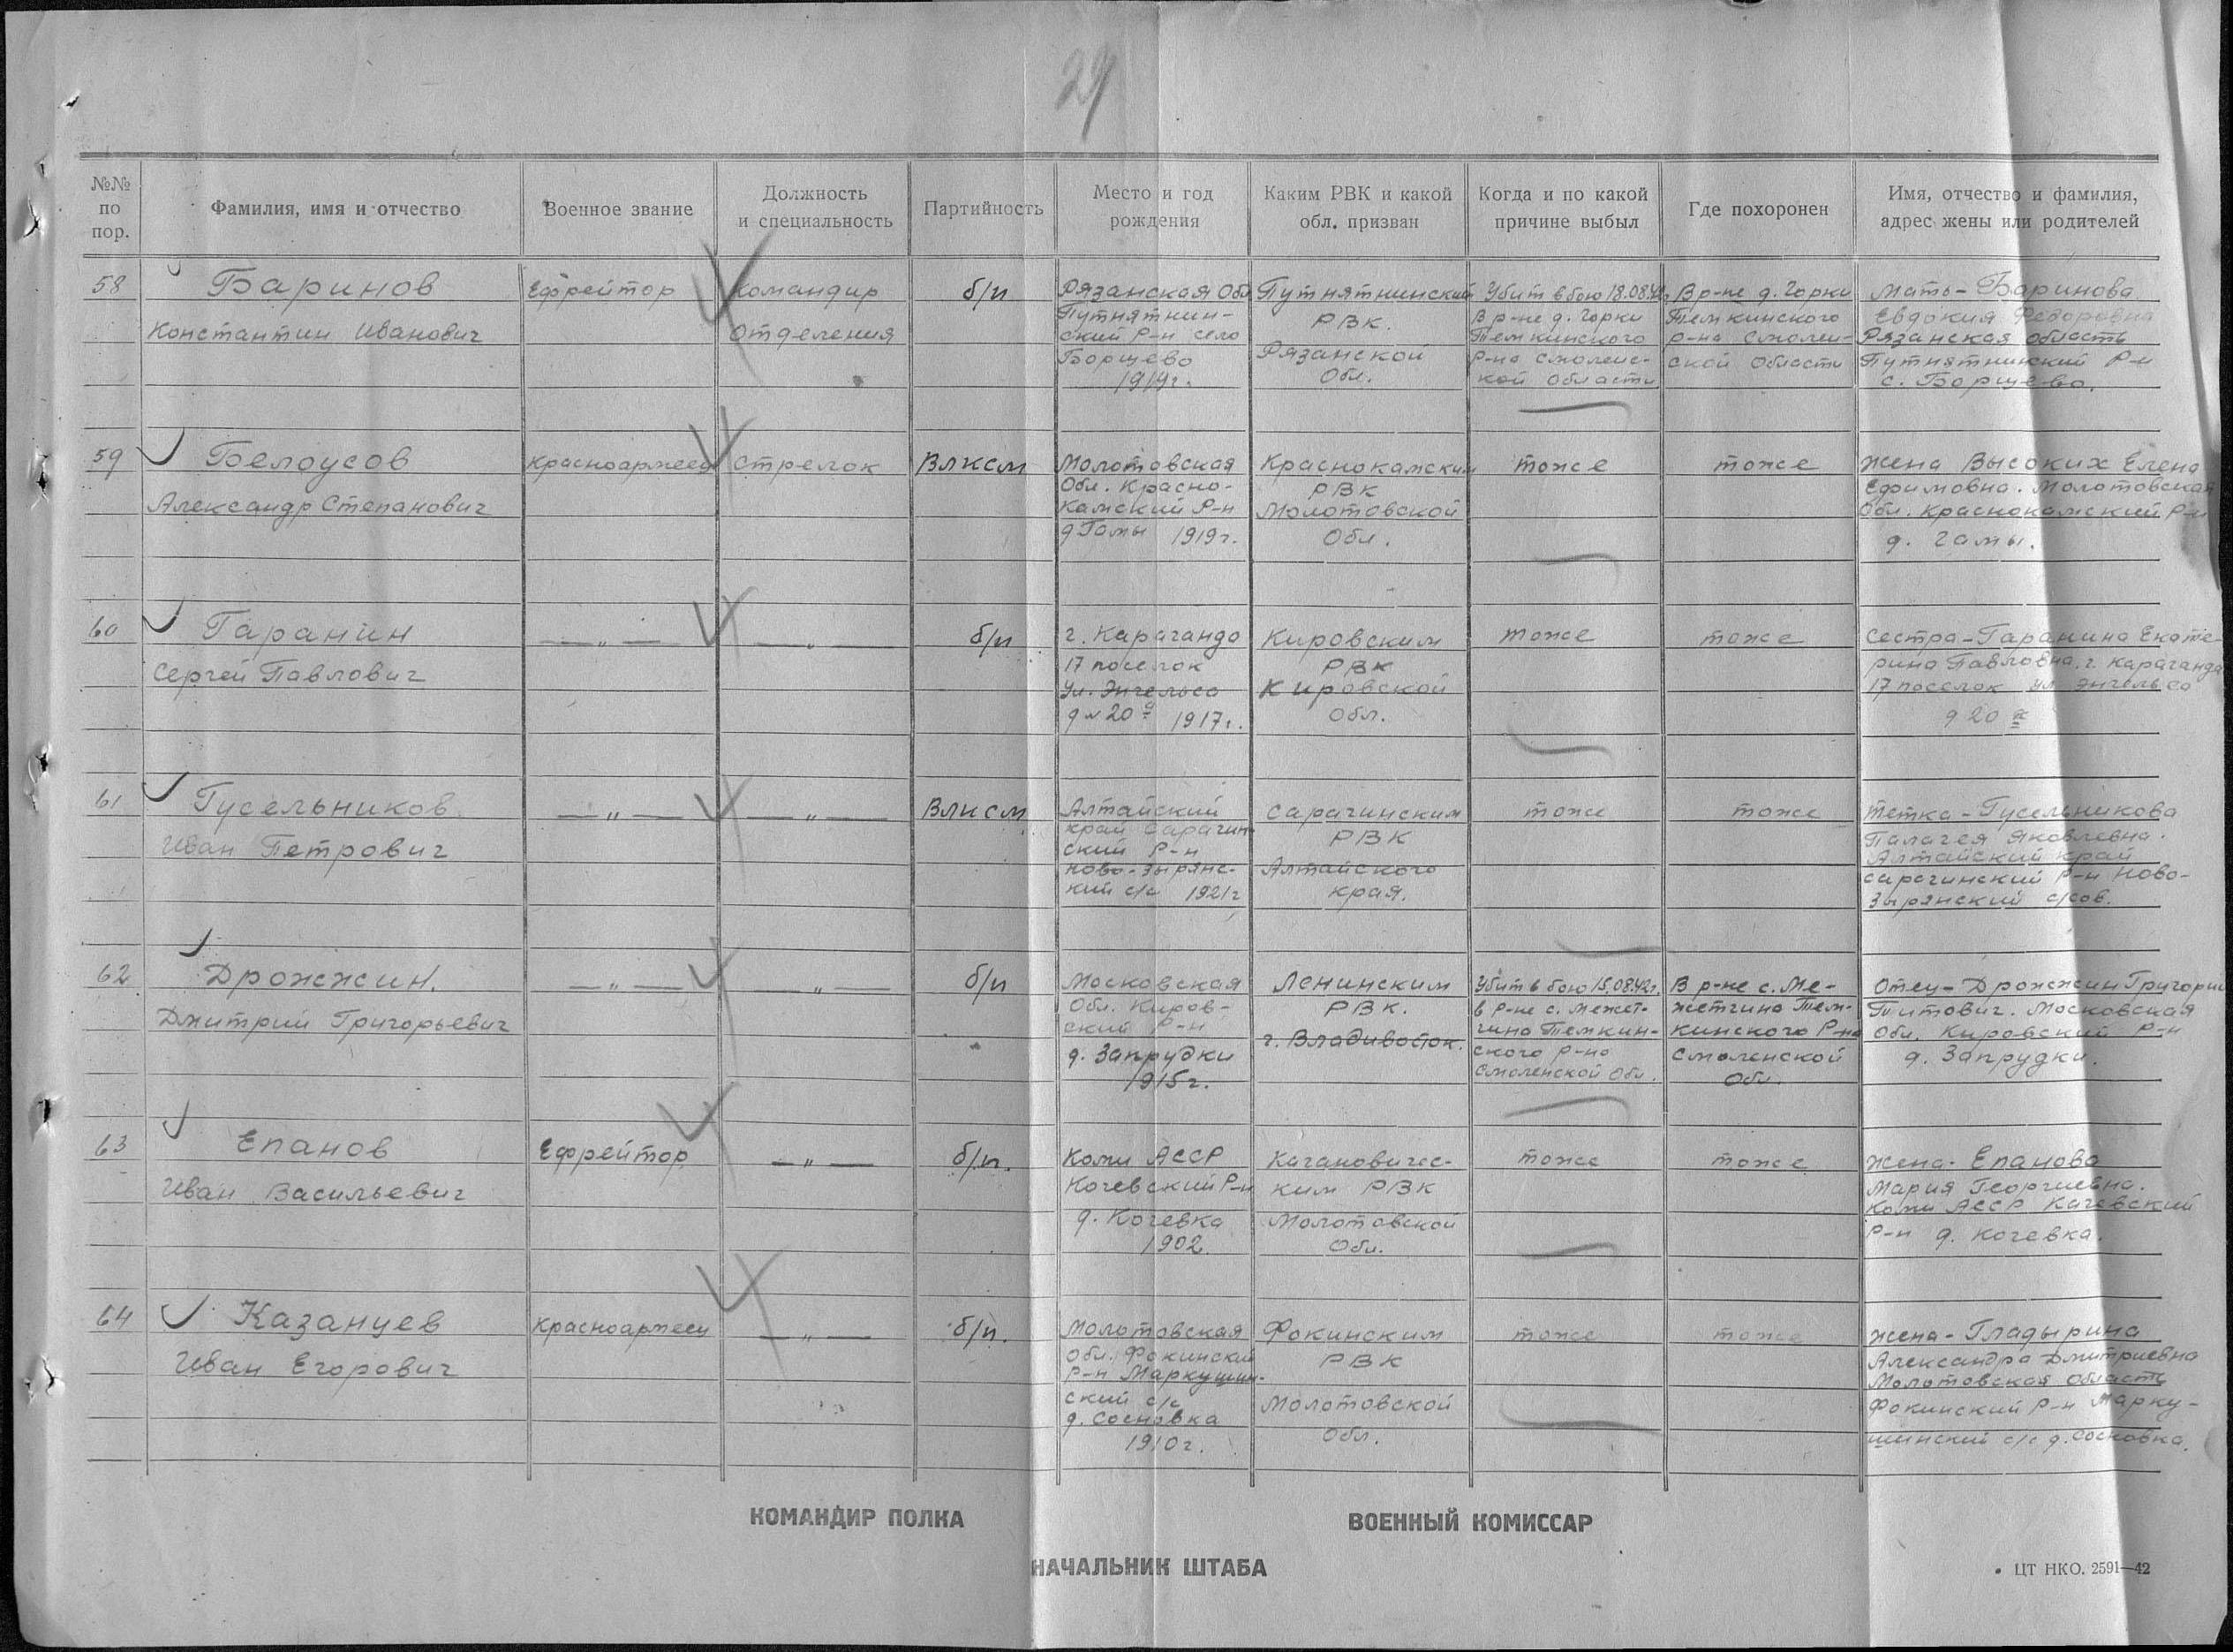 29
№№
по
пор.
Фамилия, имя и отчество
Военное звание
Должность
и специальность
Партийность
Место и год
рождения
Каким РВК и какой
обл. призван
Когда и по какой
причине выбыл
Где похоронен
Имя, отчество и фамилия,
адрес жены или родителей
58
Баринов
Константин Иванович
Ефрейтор
Командир
Отделения
б/п
Рязанская Обл
Путятнин-
ский Р-н село
Борщево
1919г.
Путнятнинский
РВК.
Рязанской
Обл.
Убит в бою 18.08.42г
В р-не д. Горки
Темкинского
р-на Смоленс-
кой Области
В р-не д. Горки
Темкинского
р-на Смолен-
ской Области
Мать - Баринова
Евдокия Федоровна
Рязанская область
Путнятнинский Р-н
с. Борщево.
59
Белоусов
Александр Степанович
Красноармеец
Стрелок
ВЛКСМ
Молотовская
Обл. Красно-
Камский Р-н
д Гамы 1919г.
Краснокамским
РВК
Молотовской
Обл.
тоже
тоже
Жена Высоких Елена
Ефимовна. Молотовская
Обл. Краснокамский Р-н
д. Гамы.
60
Гаранин
Сергей Павлович
— „ —
— „ —
б/п
г. Караганда
17 поселок
Ул. Энгельса
д № 20а 1917г.
Кировским
РВК
Кировской
Обл.
тоже
тоже
Сестра - Гаранина Екате-
рина Павловна. г. Караганда
17 поселок ул Энгельса
д 20 а
61
Гусельников
Иван Петрович
— „ —
— „ —
ВЛКСМ
Алтайский
край Сарачин-
ский Р-н
Ново-Зырянс-
кий с/с 1921г
Сарачинским
РВК
Алтайского
края.
тоже
тоже
Тетка - Гусельникова
Палагея Яковлевна.
Алтайский край
Сарачинский Р-н Ново-
Зырянский с/сов.
62
Дрожжин.
Дмитрий Григорьевич
— „ —
— „ —
б/п
Московская
Обл. Киров-
ский Р-н
д. Запрудки
1915г.
Ленинским
РВК.
г. Владивосток.
Убит в бою 15.08.42г.
в Р-не с. Межет-
чино Темкин-
ского р-на
Смоленской Обл.
В р-не с. Ме-
жетчино Тем-
кинского Р-на
Смоленской
Обл.
Отец - Дрожжин Григорий
Титович. Московская
Обл. Кировский Р-н
д. Запрудки.
63
Епанов
Иван Васильевич
Ефрейтор
— „ —
б/п.
Коми АССР
Кочевский Р-н
д. Кочевка
1902.
Кагановичес-
ким РВК
Молотовской
Обл.
тоже
тоже
Жена - Епанова
Мария Георгиевна.
Коми АССР Качевский
Р-н д. Кочевка.
64
Казанцев
Иван Егорович
Красноармеец
— „ —
б/п.
Молотовская
Обл. Фокинский
Р-н Маркушин-
ский с/с
д. Сосновка
1910г.
Фокинским
РВК
Молотовской
Обл.
тоже
тоже
Жена - Гладырина
Александра Дмитриевна
Молотовская Область
Фокинский Р-н Марку-
шинский с/с д. Сосновка.
КОМАНДИР ПОЛКА
ВОЕННЫЙ КОМИССАР
НАЧАЛЬНИК ШТАБА
ЦТ НКО. 2591—42